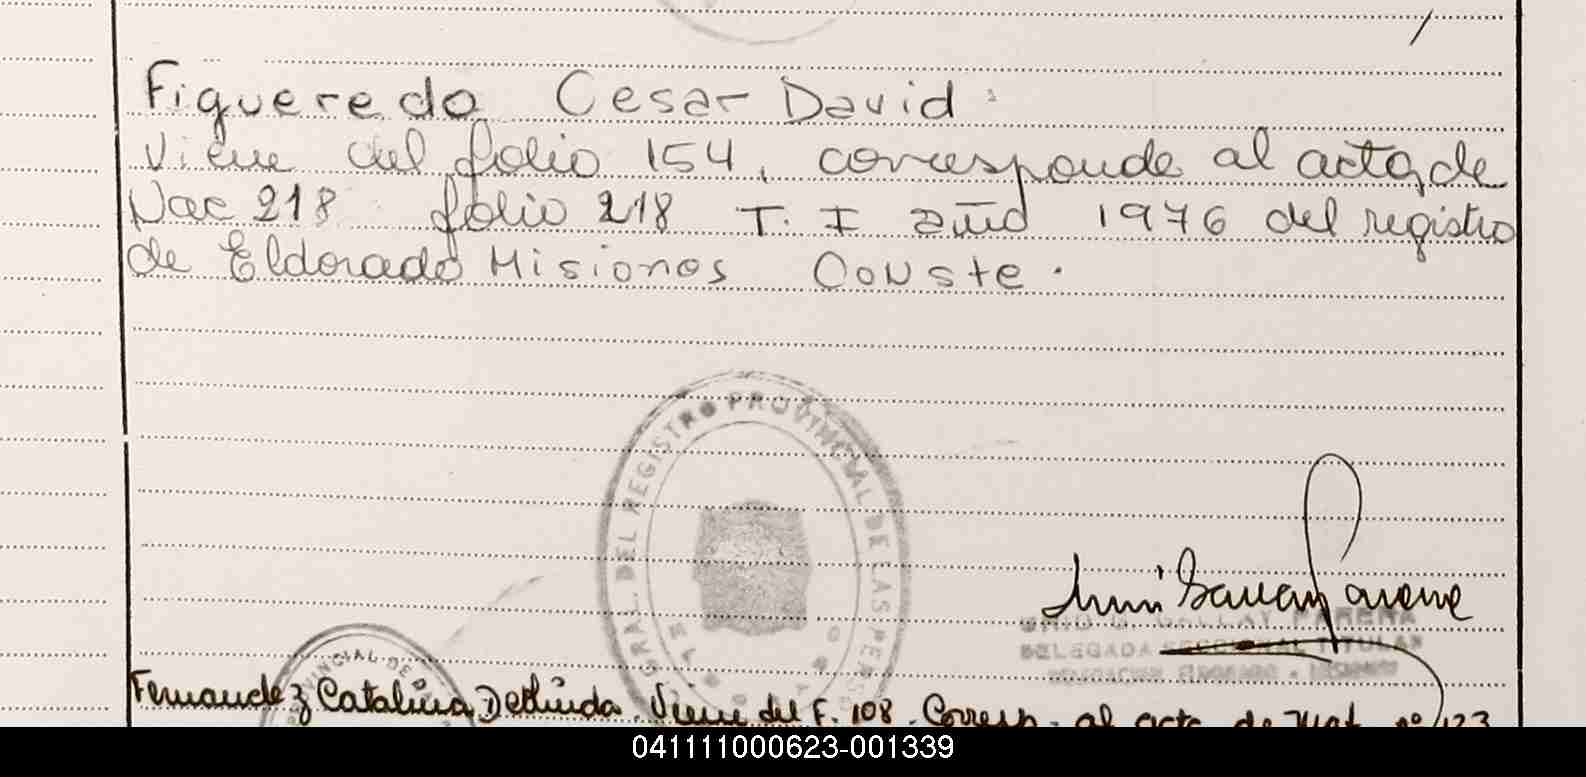 Figueredo Cesar David:
Viene del folio 154, corresponde al acta, de
Nac 218 folio 218 T. I año 1976 del registro
de Eldorado Misiones Conste.
GRAL. DEL REGISTRO PROVINCIAL DE LAS PERSO
DELEGADA SECCIONAL TITULAR
VINCIAL DE
Fernandez Catalina Deolinda. Viene del F. 108. Corresp. al acta de Mat. nº 123
041111000623-001339